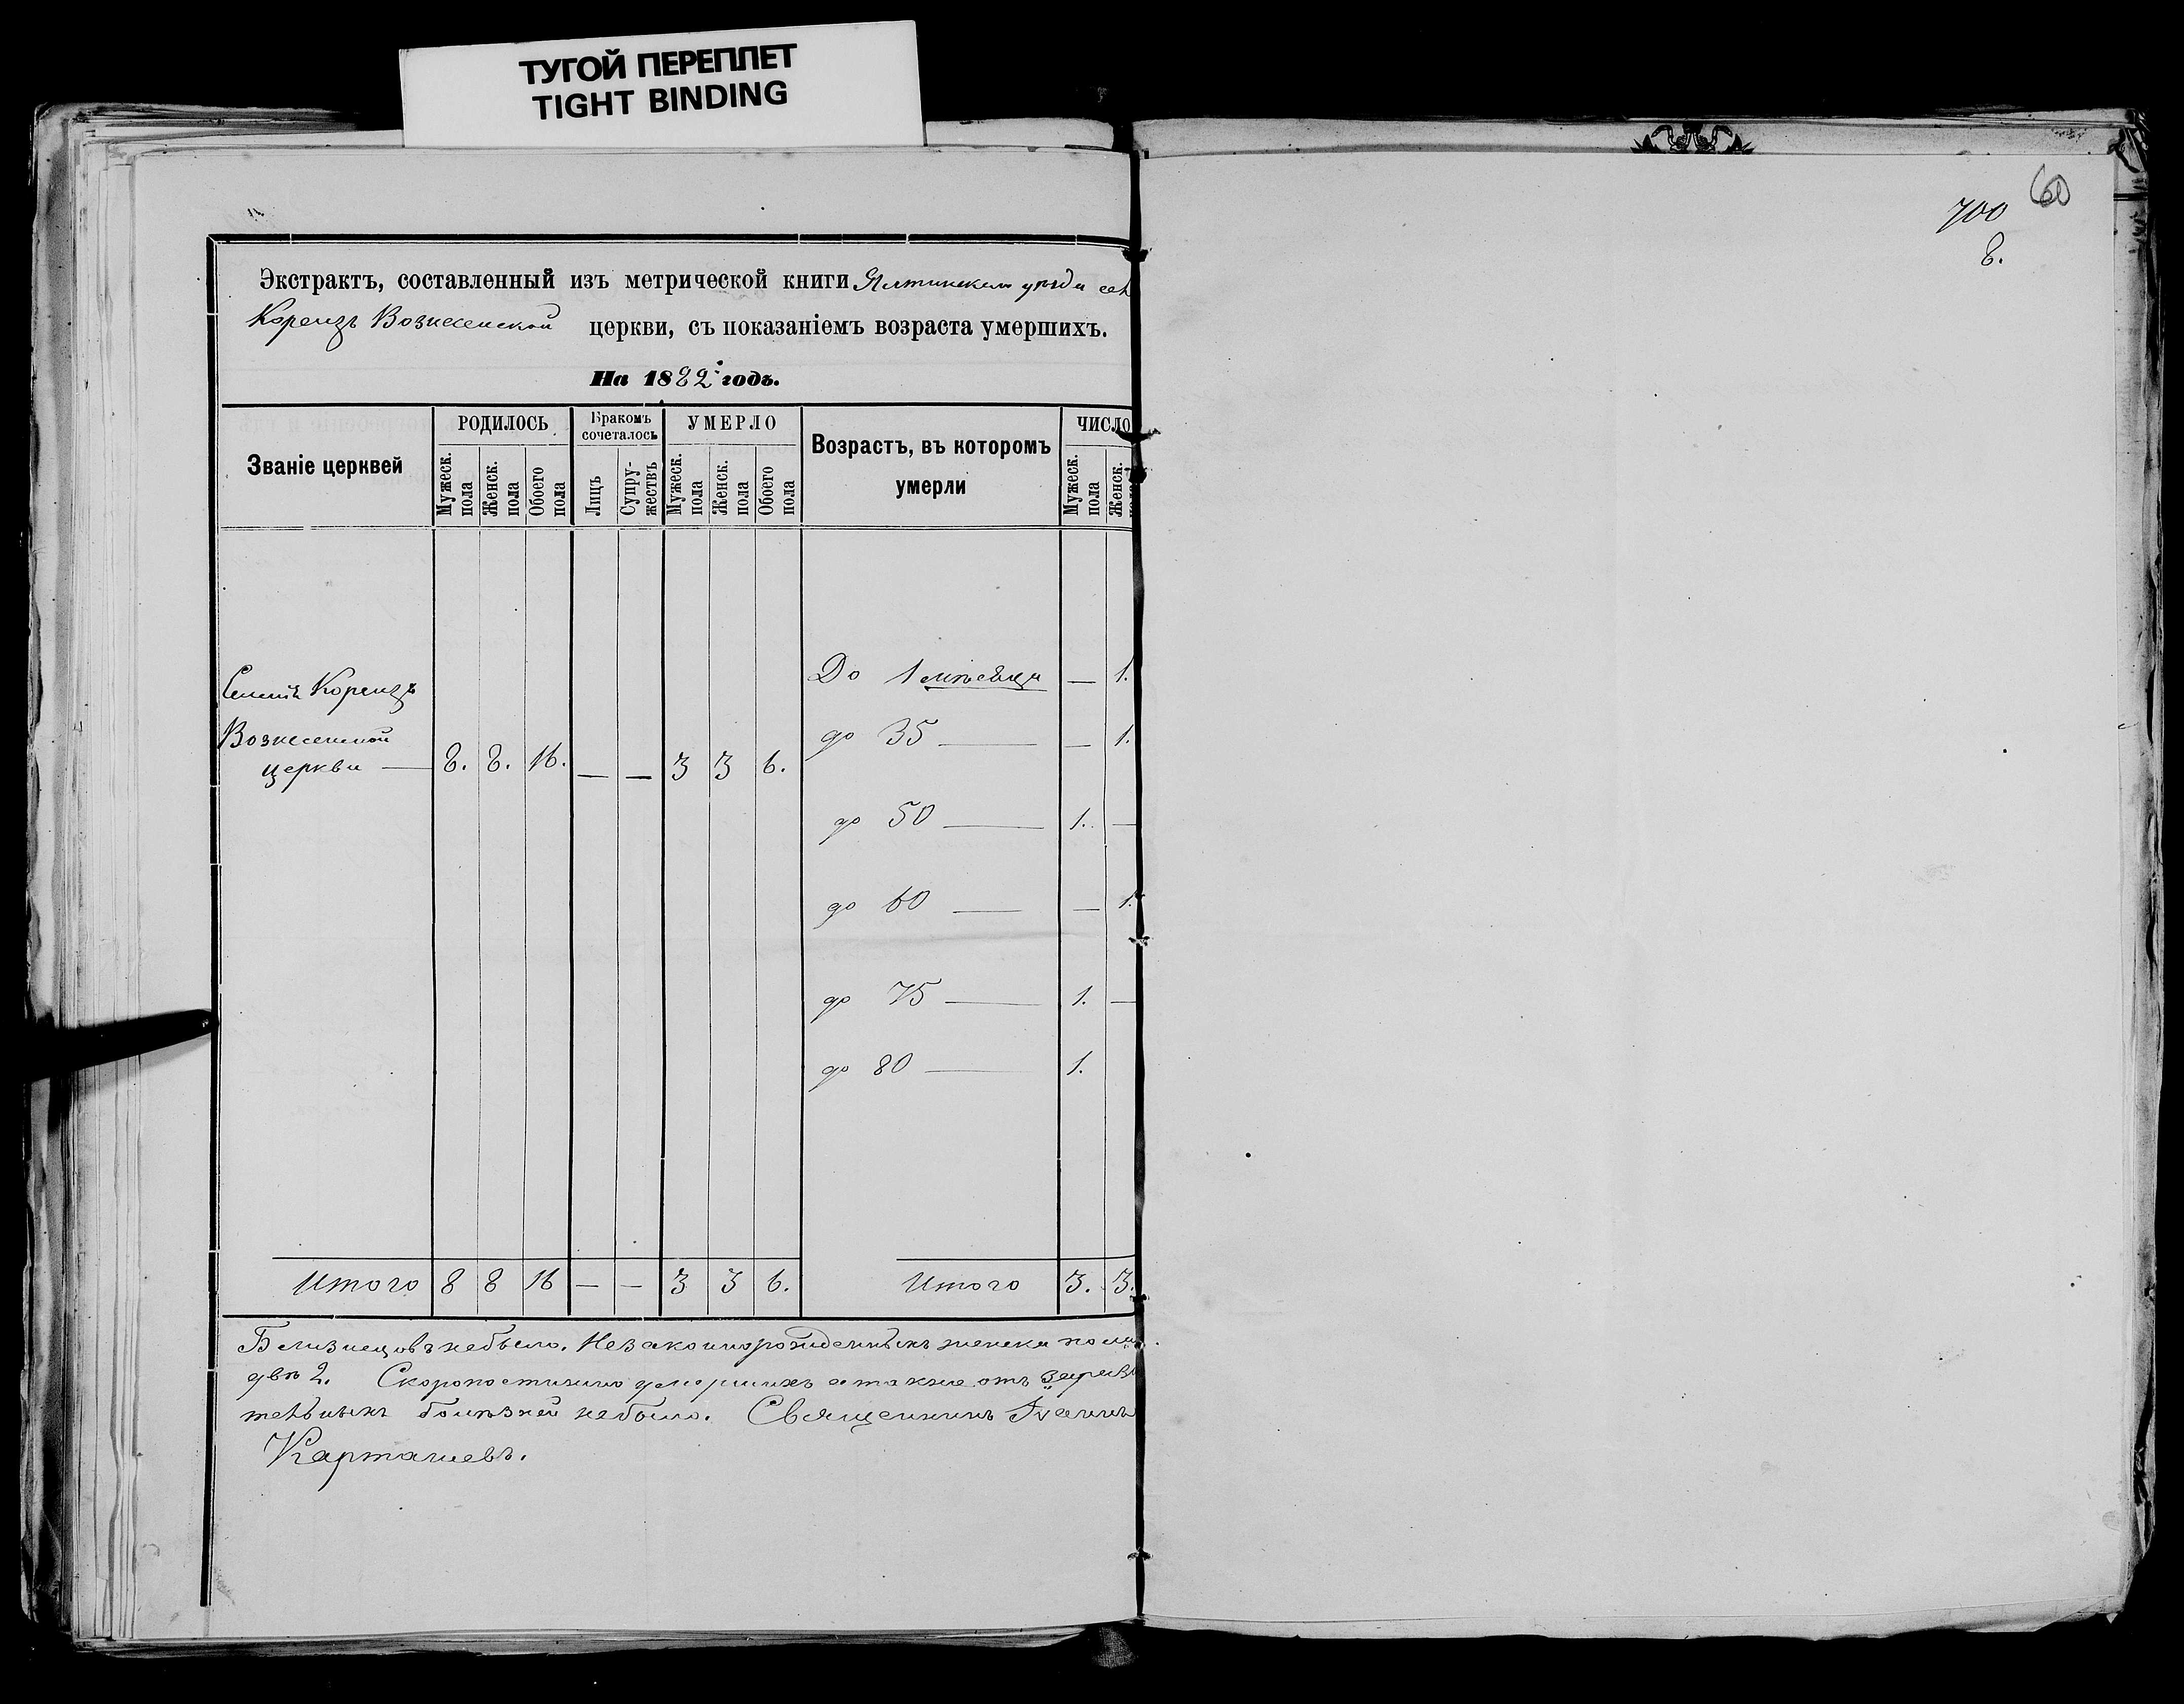 ТУГОЙ ПЕРЕПЛЕТ
TIGHT BINDING
60
700
8.
Экстрактъ, составленный изъ метрической книги Ялтинскаго уѣзда
Кореизъ Вознесенской церкви, съ показаніемъ возраста умершихъ.
На 1882 годъ.
Званіе церквей
РОДИЛОСЬ
Мужеск. пола
Женск. пола
Обоего пола
Бракомъ сочеталось
Лицъ
Супружествъ
УМЕРЛО
Мужеск. пола
Женск. пола
Обоего пола
Возрастъ, въ которомъ умерли
ЧИСЛО
Мужеск. пола
Женск. пола
Кореизъ
Вознесенской
церкви — 8. 8. 16. — — 3 3 6.
До 1 — 1.
до 35 — — 1.
до 50 — 1. —
до 60 — — 1.
до 75 — 1. —
до 80 — 1.
Итого 8 8 16 — — 3 3 6. Итого 3. 3.
Близнецовъ небыло. Незаконнорожденныхъ женска пола
двѣ 2. Скоропостижно умершихъ а также отъ
болѣзней небыло. Священникъ Іоаннъ
Карташевъ.